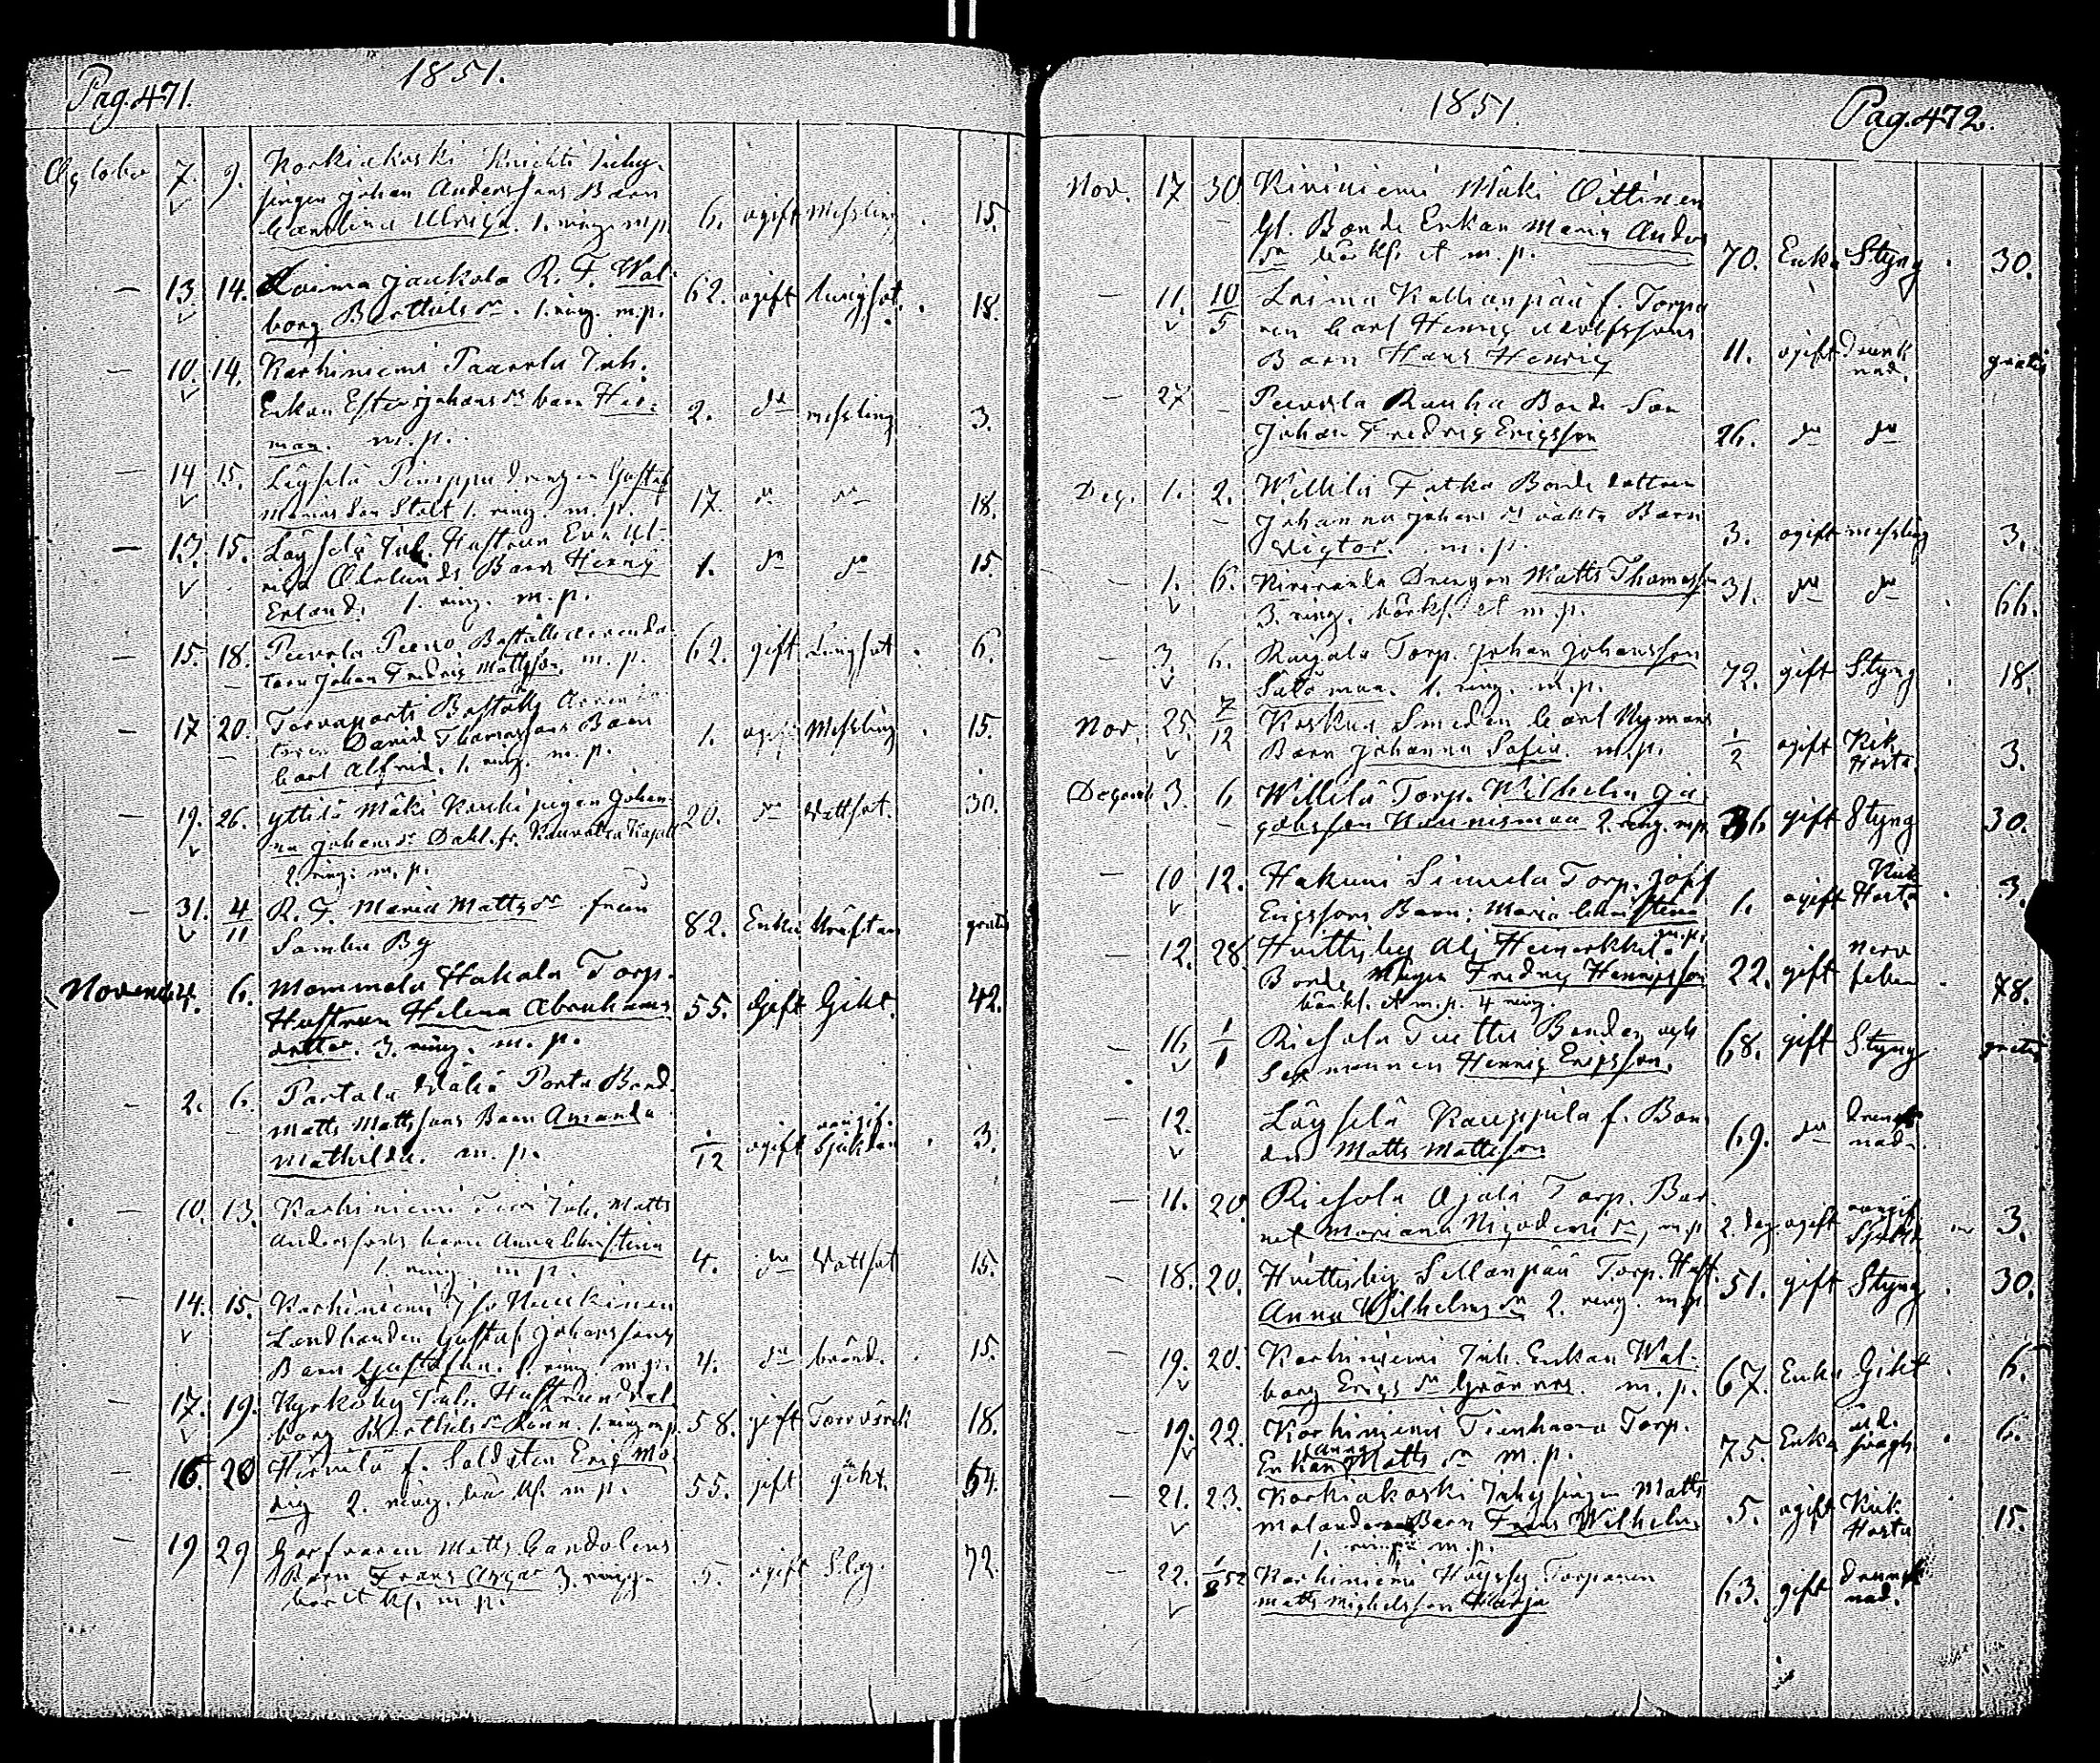 Pag. 471.
1851.
October 7. 9. Korkiakoski Knichts Inhy-
singen Johan Anderssons Barn
Carolina Ulrica. 1. ring. m.p. 6. ogift Messling 15.
— 13. 14. Loima Jaukola R. F. Wal-
borg Barthels dr. 1. ring. m.p. 62. ogift Lungsot. 18.
— 10. 14. Karhiniemi Paavola Inh.
Enkan Esters Johans dr barn Her-
man. m.p. 2. do messling 3.
— 14 15. Löyselä Pimppu drengen Gustaf
Mariasson Stolt 1. ring. m.p. 17. do do 18.
— 13. 15. Löyselä Inh. Hustrun Eva Ul-
rica Öhrlunds Barn Henric
Erland. 1. ring. m.p. 1. do do 15.
— 15. 18. Peevola Boställs arenda-
toren Johan Fredric Mattsson. m.p. 62. gift Lungsot 6.
— 17 20. Torvaporti Boställs Arren-
toren David Thomassons Barn
Carl Alfred. 1. ring. m.p. 1. ogift Messling 15.
— 19. 26. Yttilä Mäki Kauki pigan Johan-
na Johans dr Dahl. fr. Kauvatsa Kapell
2. ring. m.p. 20. do Vattsot. 30.
— 31. 4/11 R. F. Maria Matts dr från
Sambu By 82. Enka Kräftan gratis
November 4. 6. Mommola Hakala Torp.
Hustrun Helena Abrahams
dotter. 3. ring. m.p. 55. Gift Gikt. 42.
— 2. 6. Partala Wäliä Porta Bond.
Matts Mattssons Barn Amanda
Mathilda. m.p. 1/12 ogift oangif. Sjukdom 3.
— 10. 13. Karhiniemi Inh. Matts
Anderssons barn Anna Christina
1. ring. m.p. 4. do Vattsot 15.
— 14. 15. Karhiniemi Nuukinen
Landbonden Gustaf Johanssons
Barn Gustafva. 1. ring. m.p. 4. do bränd. 15.
— 17. 19. Kyrkoby Inh. Hustrun Wal-
borg Barthels dr Rönn. 1. ring m.p. 58. gift Torrvärk 18.
— 16 20 Hirvilä f. Soldaten Eric Mo-
dig 2. ring. bårkl. m.p. 55. gift gikt. 54.
— 19 29 Garfvaren Matts Candolins
Barn Frans Oscar 3. ring.
bår et kl. m.p. 5. ogift Slag. 72.
1851.
Pag. 472.
Nov. 17 30 Kiviniemi Mäki Oittinen
Gl. Bonde Enkan Maria Anders
dr bårkl. et m.p. 70. Enka Styng 30.
— 11. 10/5 Loima Kallionpää f. Torpa-
ren Carl Henric Adolfssons
Barn Hans Henric 11. ogift drunk-
nad. gratis
— 27 — Peevola Rauha Bonde Son
Johan Fredric Ericsson 26. do do
Dec. 1. 2. Willilä Fatka Bonde dottren
Johanna Johans dr oäkta Barn
Victor. m.p. 3. ogift messling 3.
— 1. 6. Drengen Matts Thomasson
3. ring. bårkl. et m.p. 31. do do 66.
— 3. 6. Raijala Torp. Johan Johansson
Salóman. 1. ring. m.p. 72. gift Styng 18.
Nov. 25. 7/12 Koskua Smeden Carl Nymans
Barn Johanna Sofia. m.p. 1/2 ogift Kik
Hosta. 3.
December 3. 6 Willilä Torp. Wilhelm Ja-
cobsson Naunismaa 2. ring. m.p. 36. gift Styng 30.
— 10 12. Hakuni Simula Torp. Josef
Ericssons Barn: Maria Christina
m.p. 1. ogift Kik Hosta 3.
— 12. 28. Huittisby Ali Heinerkkilä
Bonde Mågen Fredric Henricsson
bårkl. et m.p. 4 ring. 22. gift Nerv
feber 78.
— 16. 1/1 Riesola Tuettu Bonden och
Sexmannen Henric Ericsson. 68. gift Styng gratis
— 12. Löyselä Kauppila f. Bon-
den Matts Mattsson 69. do drunk-
nad.
— 11. 20 Riesola Ojala Torp. Bar-
net Mariana Nicodemi dr, m.p. 2. dag. ogift oangif.
Sjukd. 3.
— 18. 20. Huittisby Sillanpää Torp. Hust.
Anna Wilhelms dr 2. ring. m.p. 51. gift Styng 30.
— 19. 20. Karhiniemi Inh. Enkan Wal-
borg Erics dr Grönros. m.p. 67. Enka Gikt 6.
— 19. 22. Karhiniemi Tienhaara Torp.
Enkan Anna Matts dr m.p. 75. Enka åld.
svagh. 6.
— 21. 23. Korkiakoski Inhysingen Matts
Malanders Barn Frans Wilhelm
1. ring. m.p. 5. ogift Kik
Hosta 15.
— 22. 1/8 52 Karhiniemi Höyssy Torparen
Matts Michelsson Harja 63. gift drunk-
nad.